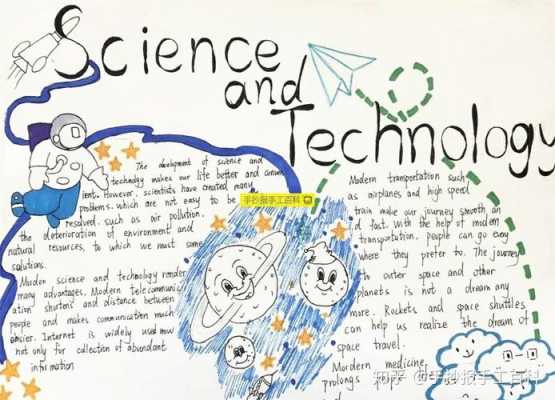 Science
and
Technology
The development of science and
technology makes our life better and conven
ient. However, scientists have created many
problems, which are not easy to be
resolved, such as air pollution,
the deterioration of environment and
natural resources, to which we must some
solutions.
Modern science and technology render
many advantages. Modern telecommunic
ation shortens and distance between
people and makes communication much
easier. Internet is widely used now
not only for collection of abundant
information
手抄报手工百科
Modern transportation such
as airplanes and high speed
train make our journey smooth an
d fast. With the help of modern
transportation, people can go easy
where they prefer to. The journey
to outer space and other
planets is not a dream any
more. Rockets and space shuttles
can help us realize the dream of
space travel.
Mordern medicine
prolongs helps
知乎 @手抄报手工百科